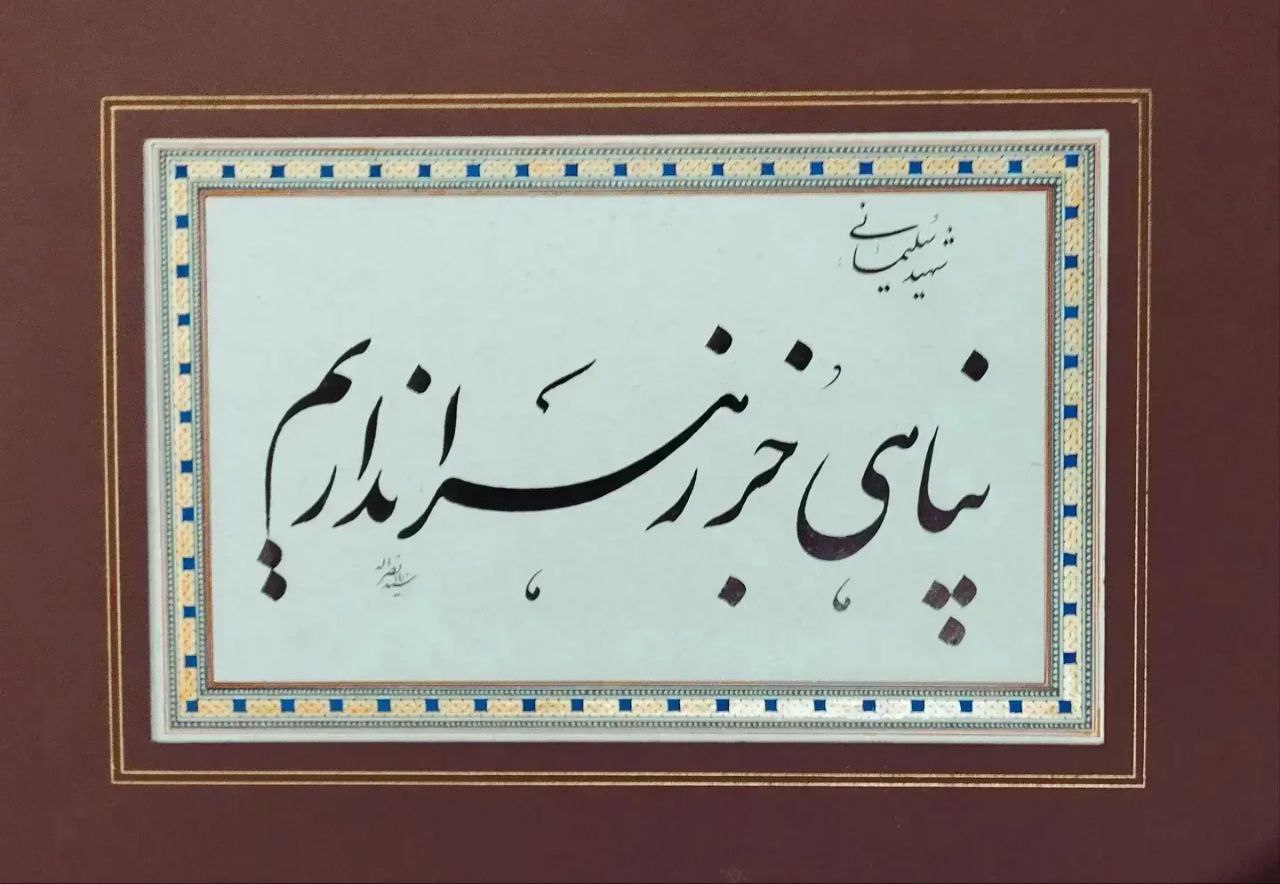 شهید سُلیمانی
پناهی جز زهرا نداریم
سید نصراله